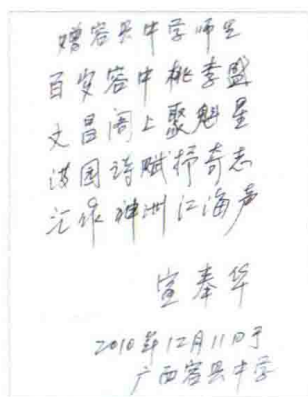 赠容县中学师生
百岁容中桃李盛
文昌阁上聚魁星
满园诗赋抒奇志
汇作神洲江海声
宣奉华
2010年12月11日于
广西容县中学